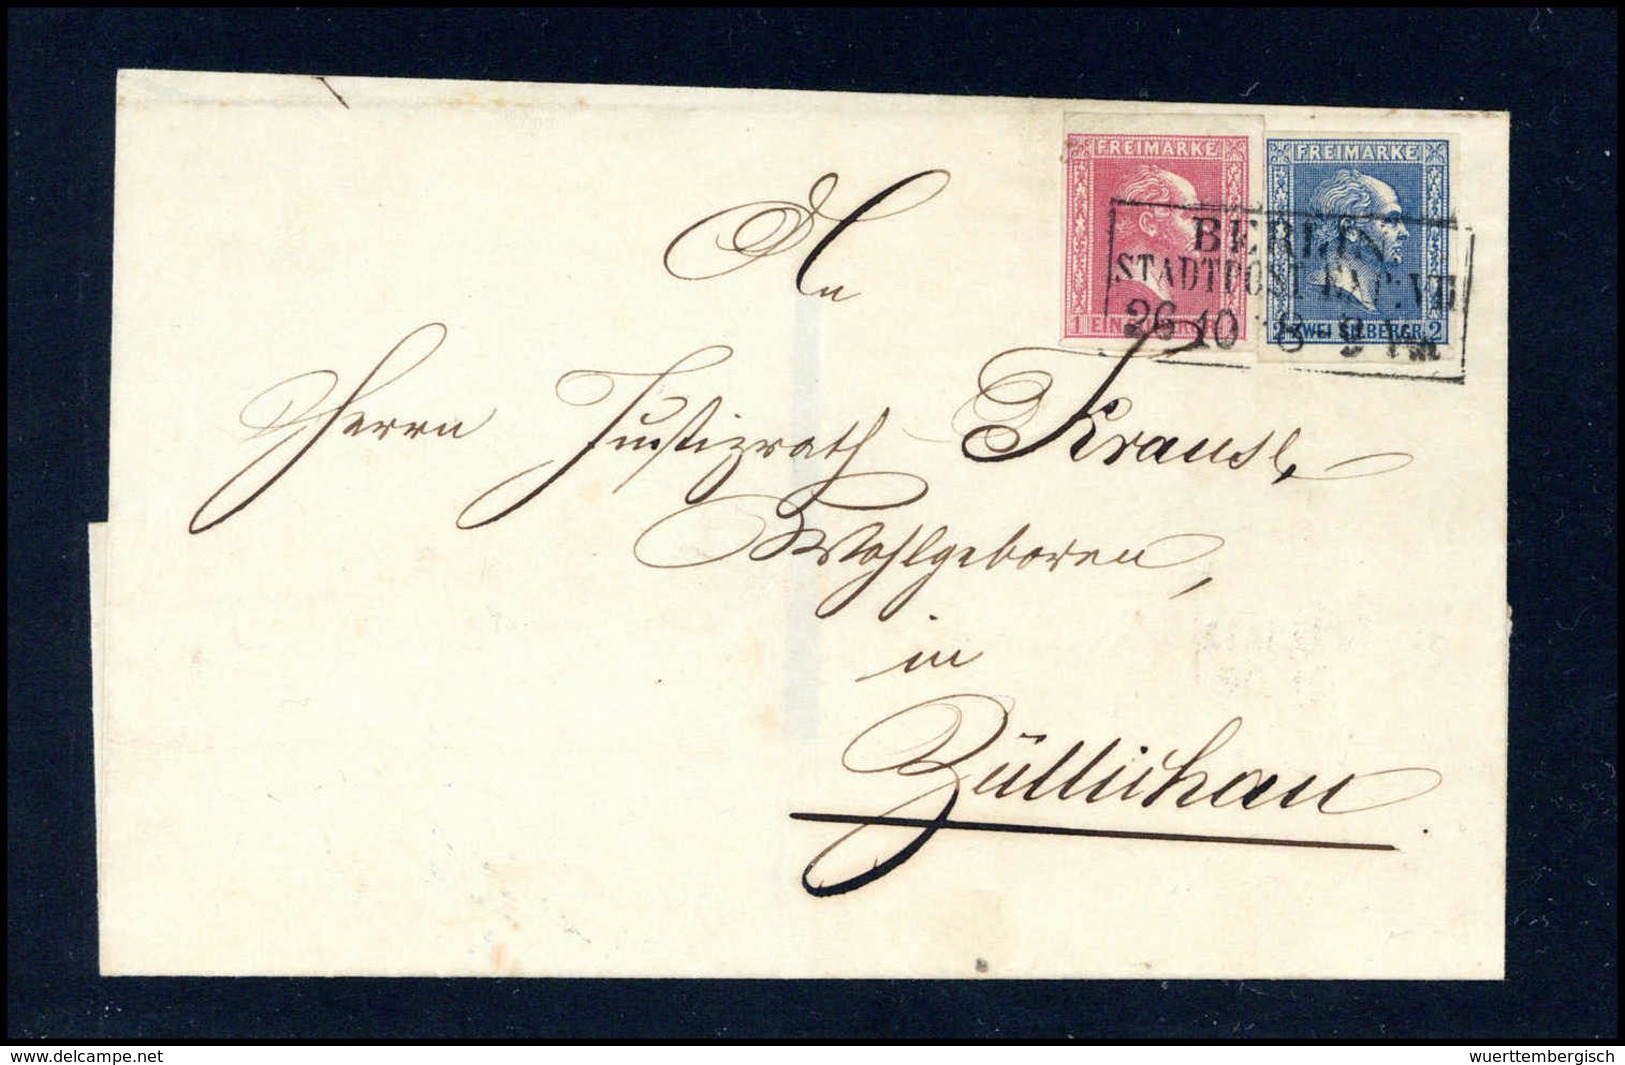 FREIMARKE
1 EIN
FREIMARKE
2 ZWEI SILBERGR. 2
BERLIN
STADTPOST EXP. VII
26 10 8-9 Vm
An
Herrn Justizrath Krause,
Wohlgeboren,
in
Züllichau.
www.delcampe.net
wuerttembergisch